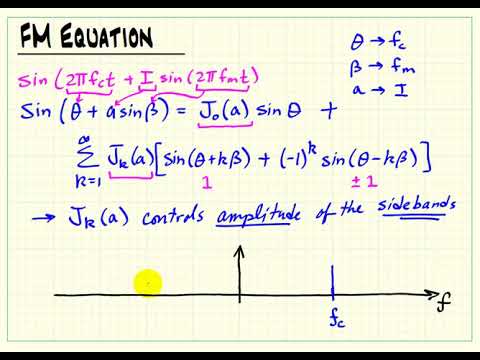 FM EQUATION
θ → f_c
sin(2πf_ct + I sin(2πf_mt)
β → f_m
a → I
Sin(θ + a sinβ) = J_0(a) sinθ +
∞
∑ J_k(a)[sin(θ+kβ) + (-1)^k sin(θ-kβ)]
k=1
1 ±1
→ J_k(a) controls amplitude of the sidebands
f
f_c